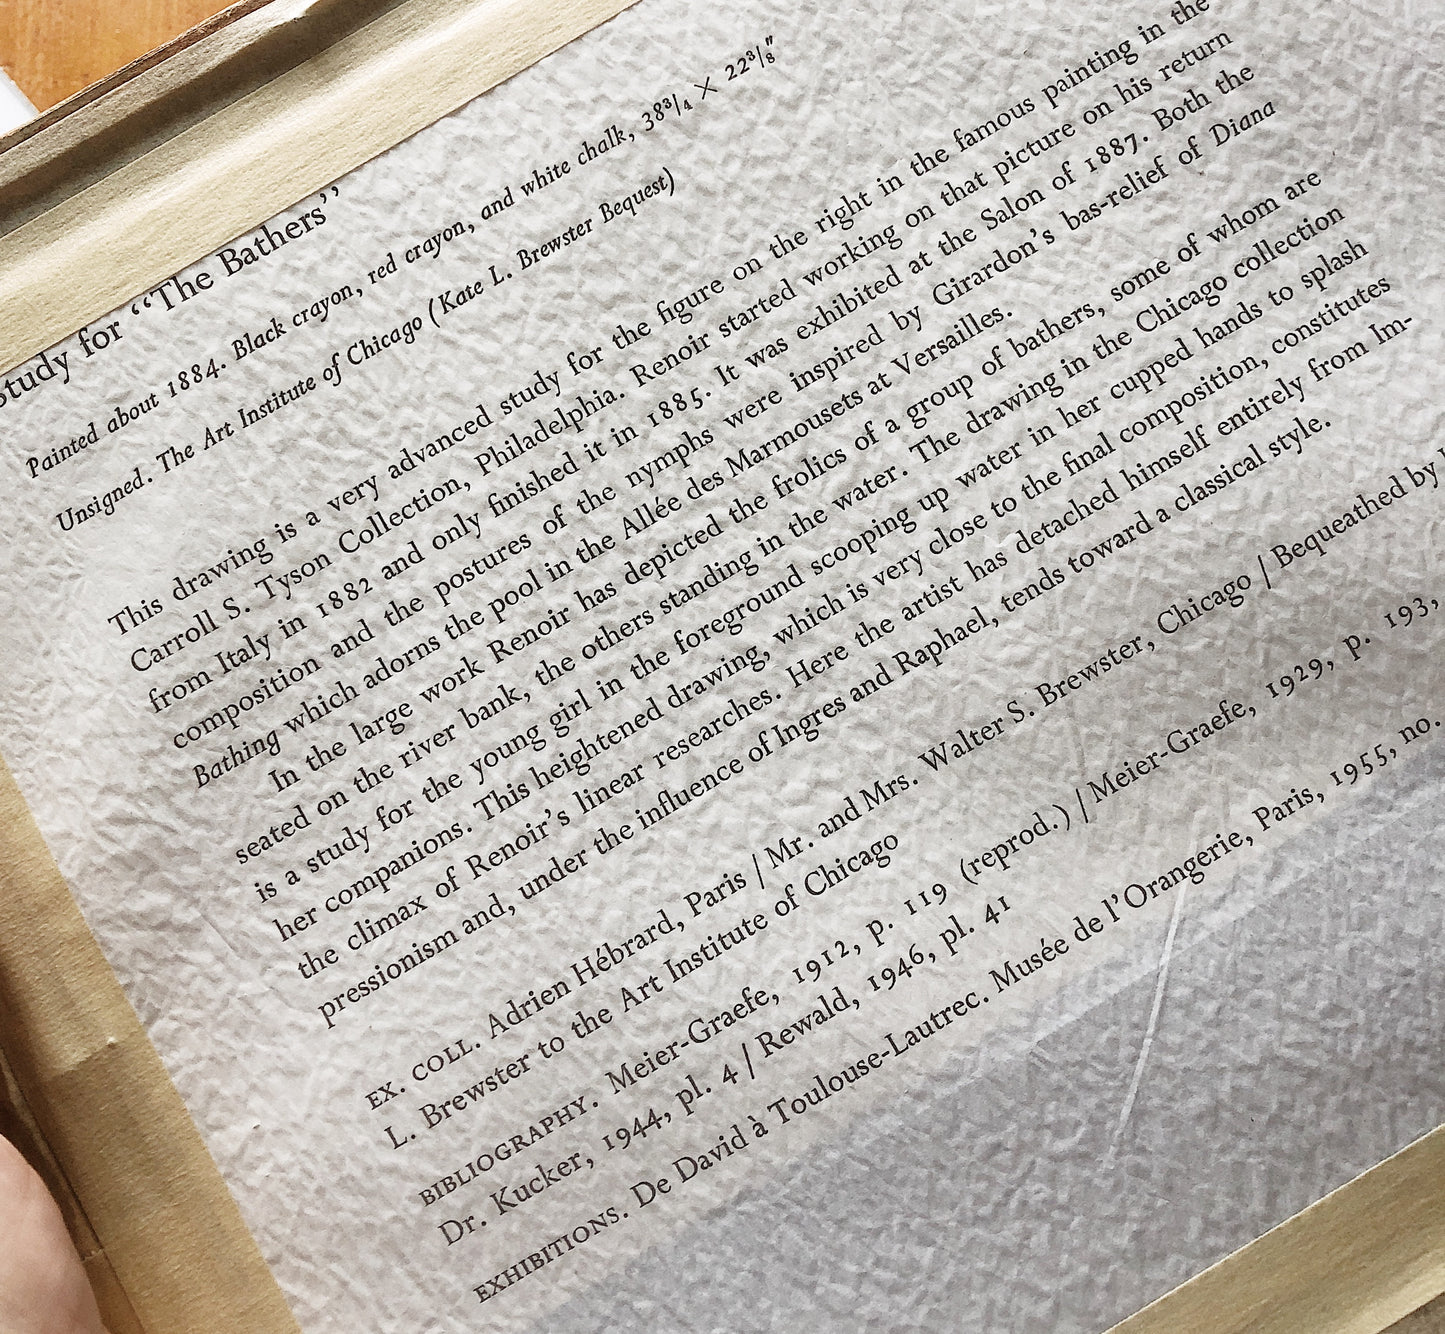 Study for “The Bathers”
Painted about 1884. Black crayon, red crayon, and white chalk, 38¾ × 22⅜″
Unsigned. The Art Institute of Chicago (Kate L. Brewster Bequest)
This drawing is a very advanced study for the figure on the right in the famous painting in the
Carroll S. Tyson Collection, Philadelphia. Renoir started working on that picture on his return
from Italy in 1882 and only finished it in 1885. It was exhibited at the Salon of 1887. Both the
composition and the postures of the nymphs were inspired by Girardon’s bas-relief of Diana
Bathing which adorns the pool in the Allée des Marmousets at Versailles.
In the large work Renoir has depicted the frolics of a group of bathers, some of whom are
seated on the river bank, the others standing in the water. The drawing in the Chicago collection
is a study for the young girl in the foreground scooping up water in her cupped hands to splash
her companions. This heightened drawing, which is very close to the final composition, constitutes
the climax of Renoir’s linear researches. Here the artist has detached himself entirely from Im-
pressionism and, under the influence of Ingres and Raphael, tends toward a classical style.
EX. COLL. Adrien Hébrard, Paris / Mr. and Mrs. Walter S. Brewster, Chicago / Bequeathed by
L. Brewster to the Art Institute of Chicago
BIBLIOGRAPHY. Meier-Graefe, 1912, p. 119 (reprod.) / Meier-Graefe, 1929, p. 193,
Dr. Kucker, 1944, pl. 4 / Rewald, 1946, pl. 41
EXHIBITIONS. De David à Toulouse-Lautrec. Musée de l’Orangerie, Paris, 1955, no.